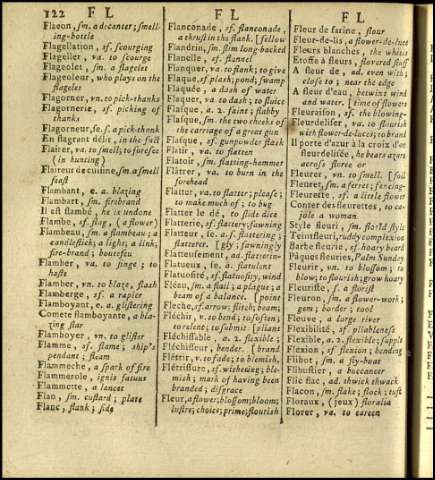 122 F L
F L
F L
Flacon, sm. a decanter; smell-
ing-bottle
Flagellation, sf. scourging
Flageller, va. to scourge
Flageolet, sm. a flagelet
Flageoleur, who plays on the
flagelet
Flagorner, vn. to pick-thanks
Flagornerie, sf. picking of
thanks
Flagorneur, se, s. a pick-thank
En flagrant délit, in the fact
Flairer, va. to smell; to foresee
(in hunting)
Flaireur de cuisine, sm. a smell
feast
Flambant, e. a. blazing
Flambart, sm. firebrand
Il est flambé, he is undone
Flambe, sf. flag, (a flower)
Flambeau, sm. a flambeau; a
candlestick; a light; a link;
fire-brand; boutefeu
Flamber, va. to singe; to
baste
Flamber, vn. to blaze, flash
Flamberge, sf. a rapier
Flamboyant, e. a. glistering
Comete flamboyante, a bla-
zing star
Flamboyer, vn. to glister
Flamme, sf. flame; ship's
pendant; fleam
Flammeche, a spark of fire
Flammerole, ignis fatuus
Flammette, a lancet
Flan, sm. custard; plate
Flanc, flank; side
Flanconade, sf. flanconade,
a thrust in the flank. [fellow
Flandrin, sm. slim long-backed
Flanelle, sf. flannel
Flanquer, va. to flank; to give
Flaque, sf. plash; pond; swamp
Flaquée, a dash of water
Flaquer, va. to dash; to sluice
Flasque, a. 2. faint; flabby
Flasque, sm. the two cheeks of
the carriage of a great gun
Flasque, sf. gunpowder flask
Flatir, to flatten
Flatoir, sm. flatting-hammer
Flâtrer, va. to burn in the
forehead
Flatter, va. to flatter; please;
to make much of; to bug
Flatter le dé, to slide dice
Flatterie, sf. flattery; fawning
Flatteur, se, s. flattering;
flatterer. [gly; fawningly
Flatteusement, ad. flatterin-
Flatueux, se, a. flatulent
Flatuosité, sf. flatuosity, wind
Fléau, sm. a flail; a plague; a
beam of a balance. [point
Fleche, sf. arrow; flitch; beam;
Fléchir, v. to bend; to soften;
to relent; to submit [pliant
Fléchissable, a. 2. flexible;
Fléchisseur, bender. [brand
Flétrir, v. to fade; to blemish;
Flétrissure, sf. withering; ble-
mish; mark of having been
branded; disgrace
Fleur, a flower; blossom; bloom;
lustre; choice; prime; flourish
Fleur de farine, flour
Fleur-de-lis, a flower-de-luce
Fleurs blanches, the whites
Etoffe à fleurs, flovered stuff
A fleur de, ad. even with;
close to; near the edge
A fleur d'eau, betwixt wind
and water. [time of flowers
Fleuraison, sf. the blowing-
Fleurdeliser, va. to flourish
with flower-de-luces; to brand
Il porte d'azur à la croix d'or
fleurdelisée, he bears azure
across florée or
Fleurer, vn. to smell. [foil
Fleuret, sm. a ferret; fencing-
Fleurette, sf. a little flower
Conter des fleurettes, to ca-
jole a woman
Style fleuri, sm. florid style
Teint fleuri, ruddy complexion
Barbe fleurie, sf. hoary beard
Pâques fleuries, Palm Sunday
Fleurir, vn. to blossom; to
blow; to flourish; grow hoary
Fleuriste, s. a florist
Fleuron, sm. a flower-work;
gem; border; tool
Fleuve, a large river
Flexibilité, sf. pliableness
Flexible, a. 2. flexible; supple
Flexion, sf. flexion; bending
Flibot, sm. a fly-boat
Flibustier, a buccaneer
Flic flac, ad. thwick thwack
Flocon, sm. flake; flock; tuft
Floraux, (jeux) floralia
Florer, va. to careen